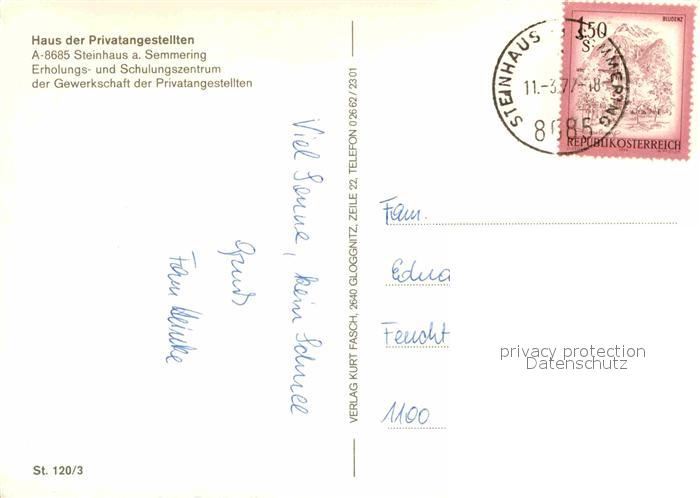 Haus der Privatangestellten
A-8685 Steinhaus a. Semmering
Erholungs- und Schulungszentrum
der Gewerkschaft der Privatangestellten
Viel Sonne, kein Schnee
Gruß
Fam
St. 120/3
VERLAG KURT FASCH, 2640 GLOGGNITZ, ZEILE 22, TELEFON 02662/2301
STEINHAUS A. SEMMERING
8685
BLUDENZ
1.50
S
REPUBLIK ÖSTERREICH
Fam.
Edua
Feucht
1100
privacy protection
Datenschutz